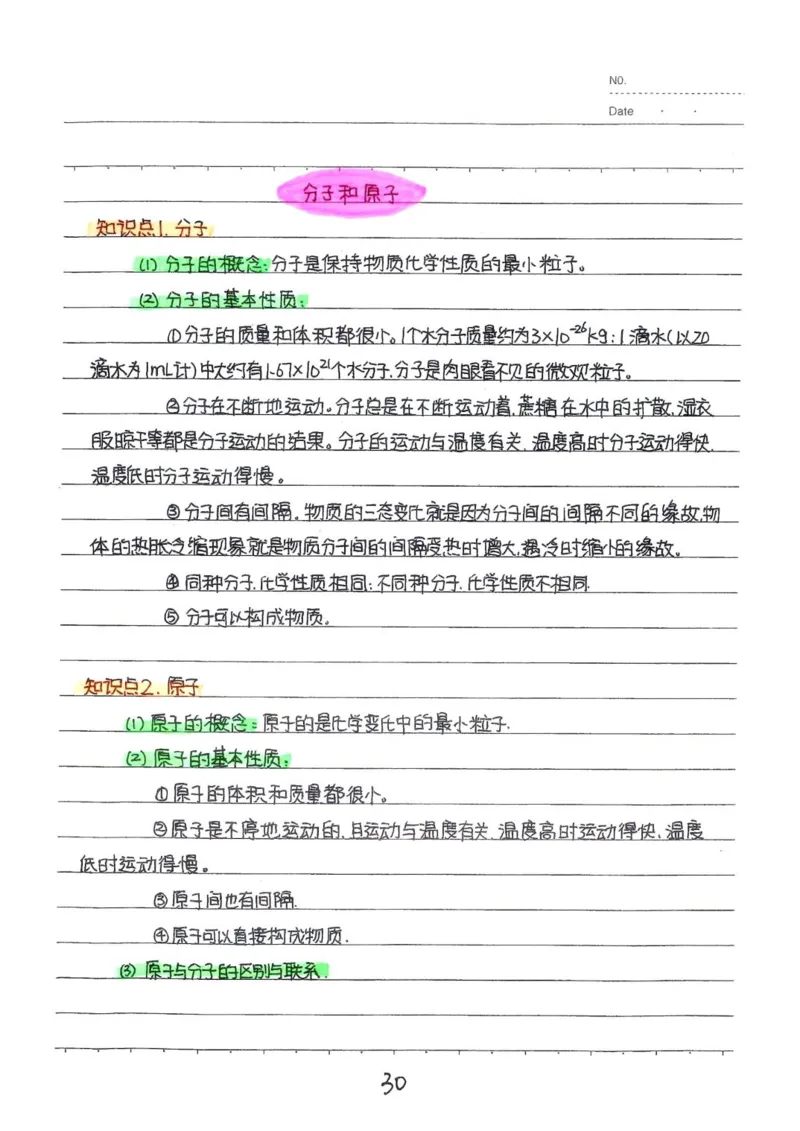 NO.
Date
分子和原子
知识点1.分子
(1)分子的概念:分子是保持物质化学性质的最小粒子。
(2)分子的基本性质:
①分子的质量和体积都很小。1个水分子质量约为3×10⁻²⁶kg;1滴水(以20
滴水为1mL计)中大约有1.67×10²¹个水分子.分子是肉眼看不见的微观粒子。
②分子在不断地运动。分子总是在不断运动着,蔗糖在水中的扩散,湿衣
服晾干等都是分子运动的结果。分子的运动与温度有关,温度高时分子运动得快,
温度低时分子运动得慢。
③分子间有间隔。物质的三态变化就是因为分子间的间隔不同的缘故,物
体的热胀冷缩现象就是物质分子间的间隔受热时增大,遇冷时缩小的缘故。
④同种分子,化学性质相同;不同种分子,化学性质不相同.
⑤分子可以构成物质。
知识点2.原子
(1)原子的概念:原子的是化学变化中的最小粒子.
(2)原子的基本性质:
①原子的体积和质量都很小。
②原子是不停地运动的,且运动与温度有关,温度高时运动得快,温度
低时运动得慢。
③原子间也有间隔.
④原子可以直接构成物质.
(3)原子与分子的区别与联系.
30